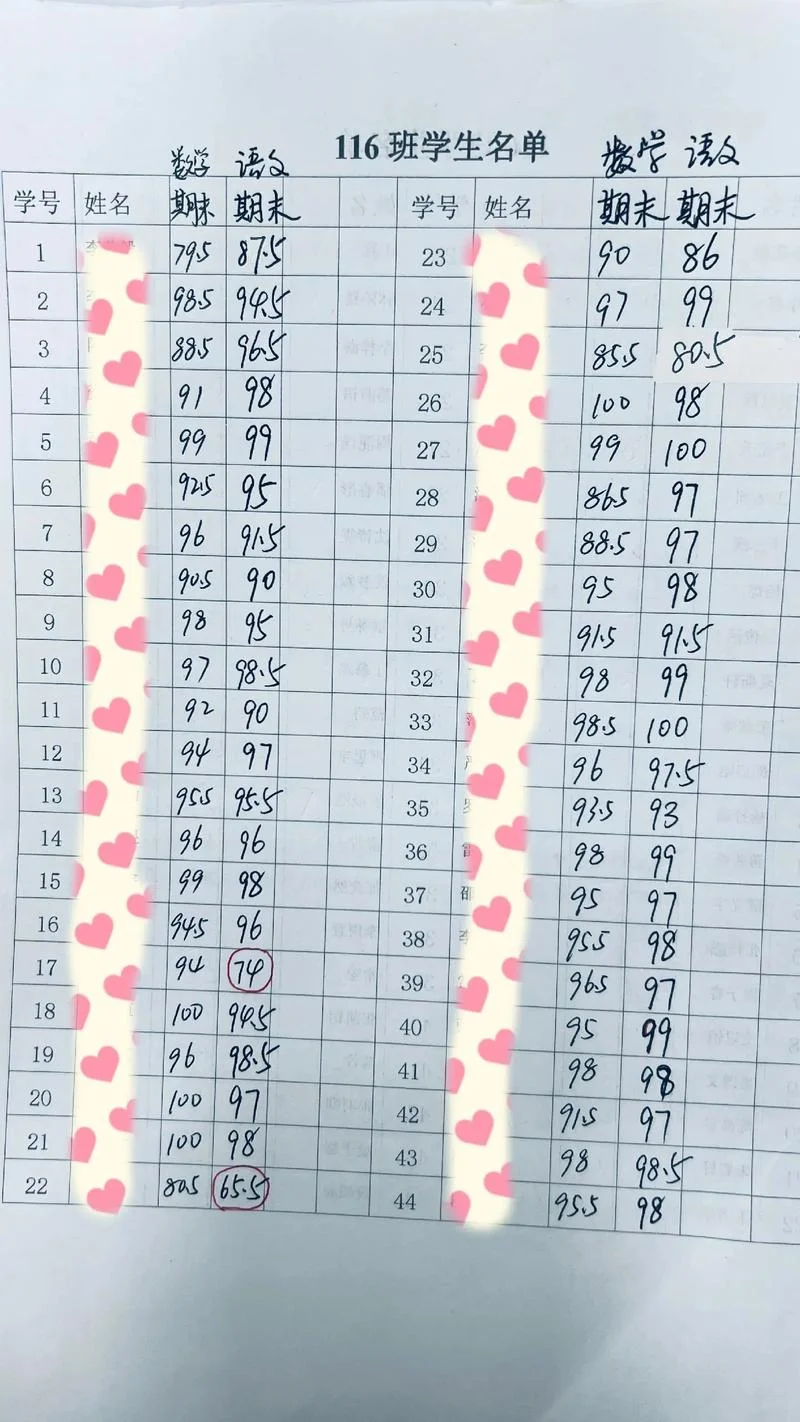 116 班学生名单
数学 语文 数学 语文
学号 姓名 期末 期末 学号 姓名 期末 期末
1 79.5 87.5 23 90 86
2 98.5 94.5 24 97 99
3 88.5 96.5 25 85.5 80.5
4 91 98 26 100 98
5 99 99 27 99 100
6 92.5 95 28 86.5 97
7 96 91.5 29 88.5 97
8 90.5 90 30 95 98
9 98 95 31 91.5 91.5
10 97 98.5 32 98 99
11 92 90 33 98.5 100
12 94 97 34 96 97.5
13 95.5 95.5 35 93.5 93
14 96 96 36 98 99
15 99 98 37 95 97
16 94.5 96 38 95.5 98
17 94 74 39 96.5 97
18 100 94.5 40 95 99
19 96 98.5 41 98 98
20 100 97 42 91.5 97
21 100 98 43 98 98.5
22 80.5 65.5 44 95.5 98